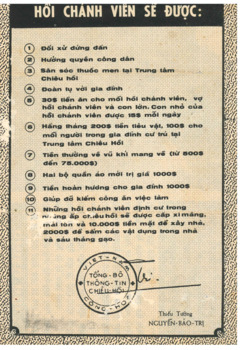 HỒI CHÁNH VIÊN SẼ ĐƯỢC:
1 Đối xử đứng đắn
2 Hưởng quyền công dân
3 Săn sóc thuốc men tại Trung tâm
Chiêu hồi
4 Đoàn tụ với gia đình
5 30$ tiền ăn cho mỗi hồi chánh viên, vợ
hồi chánh viên và con lớn. Con nhỏ của
hồi chánh viên được 15$ mỗi ngày
6 Hằng tháng 200$ tiền tiêu vặt, 100$ cho
mỗi người trong gia đình cư trú tại
Trung tâm Chiêu Hồi
7 Tiền thưởng về vũ khí mang về (từ 800$
đến 75.000$)
8 Hai bộ quần áo mới trị giá 1000$
9 Tiền hoàn hương cho gia đình 1000$
10 Giúp đỡ kiếm công ăn việc làm
11 Những hồi chánh viên định cư trong
những ấp chiêu hồi sẽ được cấp xi măng,
mái tôn và 10.000$ tiền mặt để xây nhà,
2000$ để sắm các vật dụng trong nhà
và sáu tháng gạo.
VIỆT-NAM
TỔNG-BỘ
THÔNG-TIN
CHIÊU-HỒI
CỘNG-HÒA
Thiếu Tướng
NGUYỄN-BẢO-TRỊ